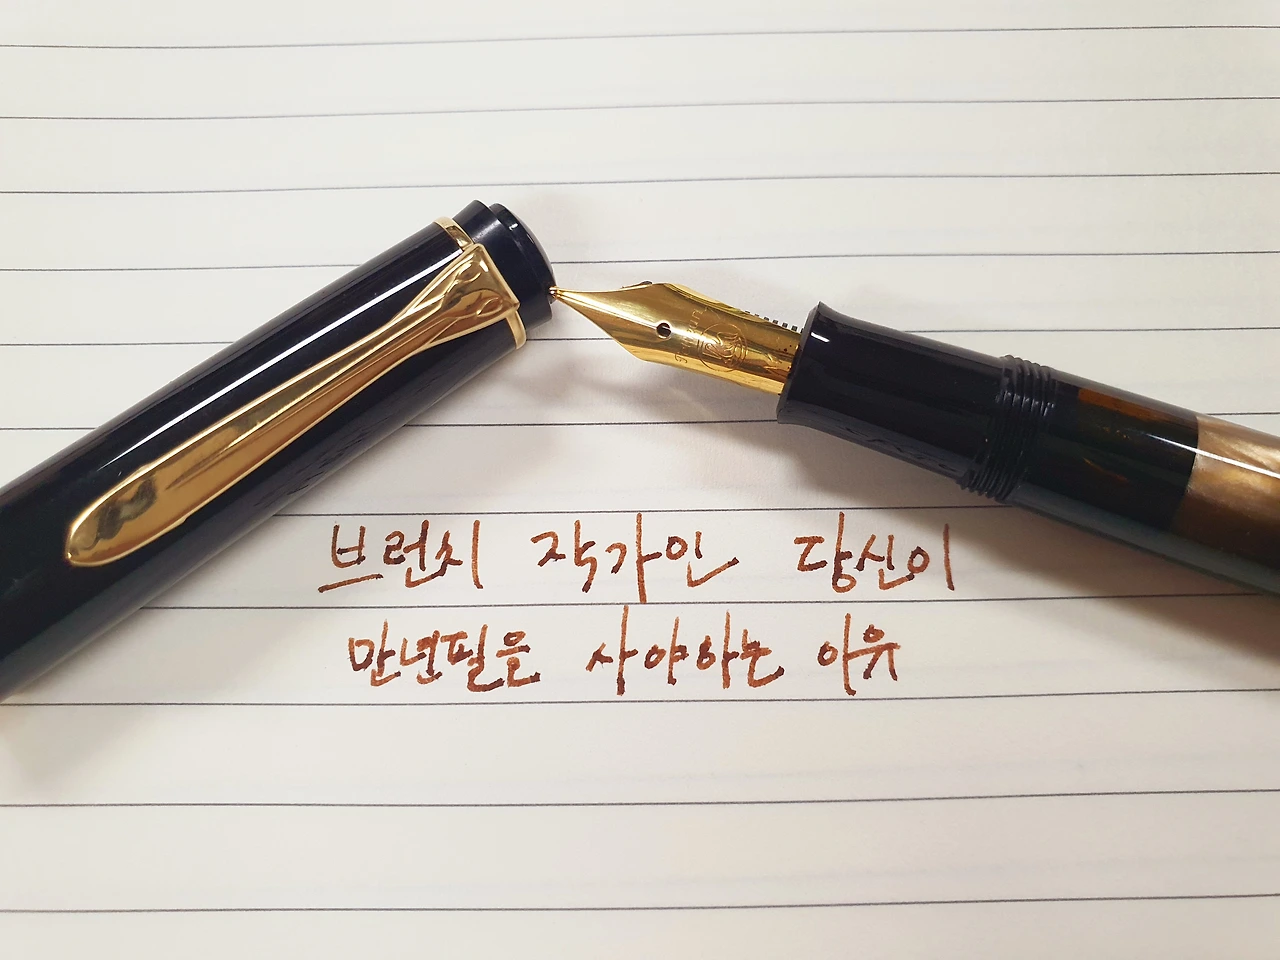 브런치 작가인 당신이
만년필을 사야하는 이유